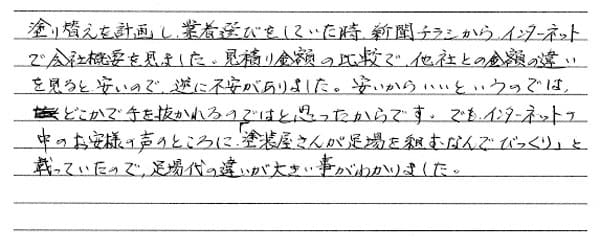 塗り替えを計画し、業者選びをしていた時、新聞チラシから、インターネット
で会社概要を見ました。見積り金額の比較で、他社との金額の違い
を見ると、安いので、逆に不安がありました。安いからいいというのでは、
どこかで手を抜かれるのではと思ったからです。でも、インターネットの
中のお客様の声のところに、「塗装屋さんが足場を組むなんてびっくり」と
載っていたので、足場代の違いが大きい事がわかりました。